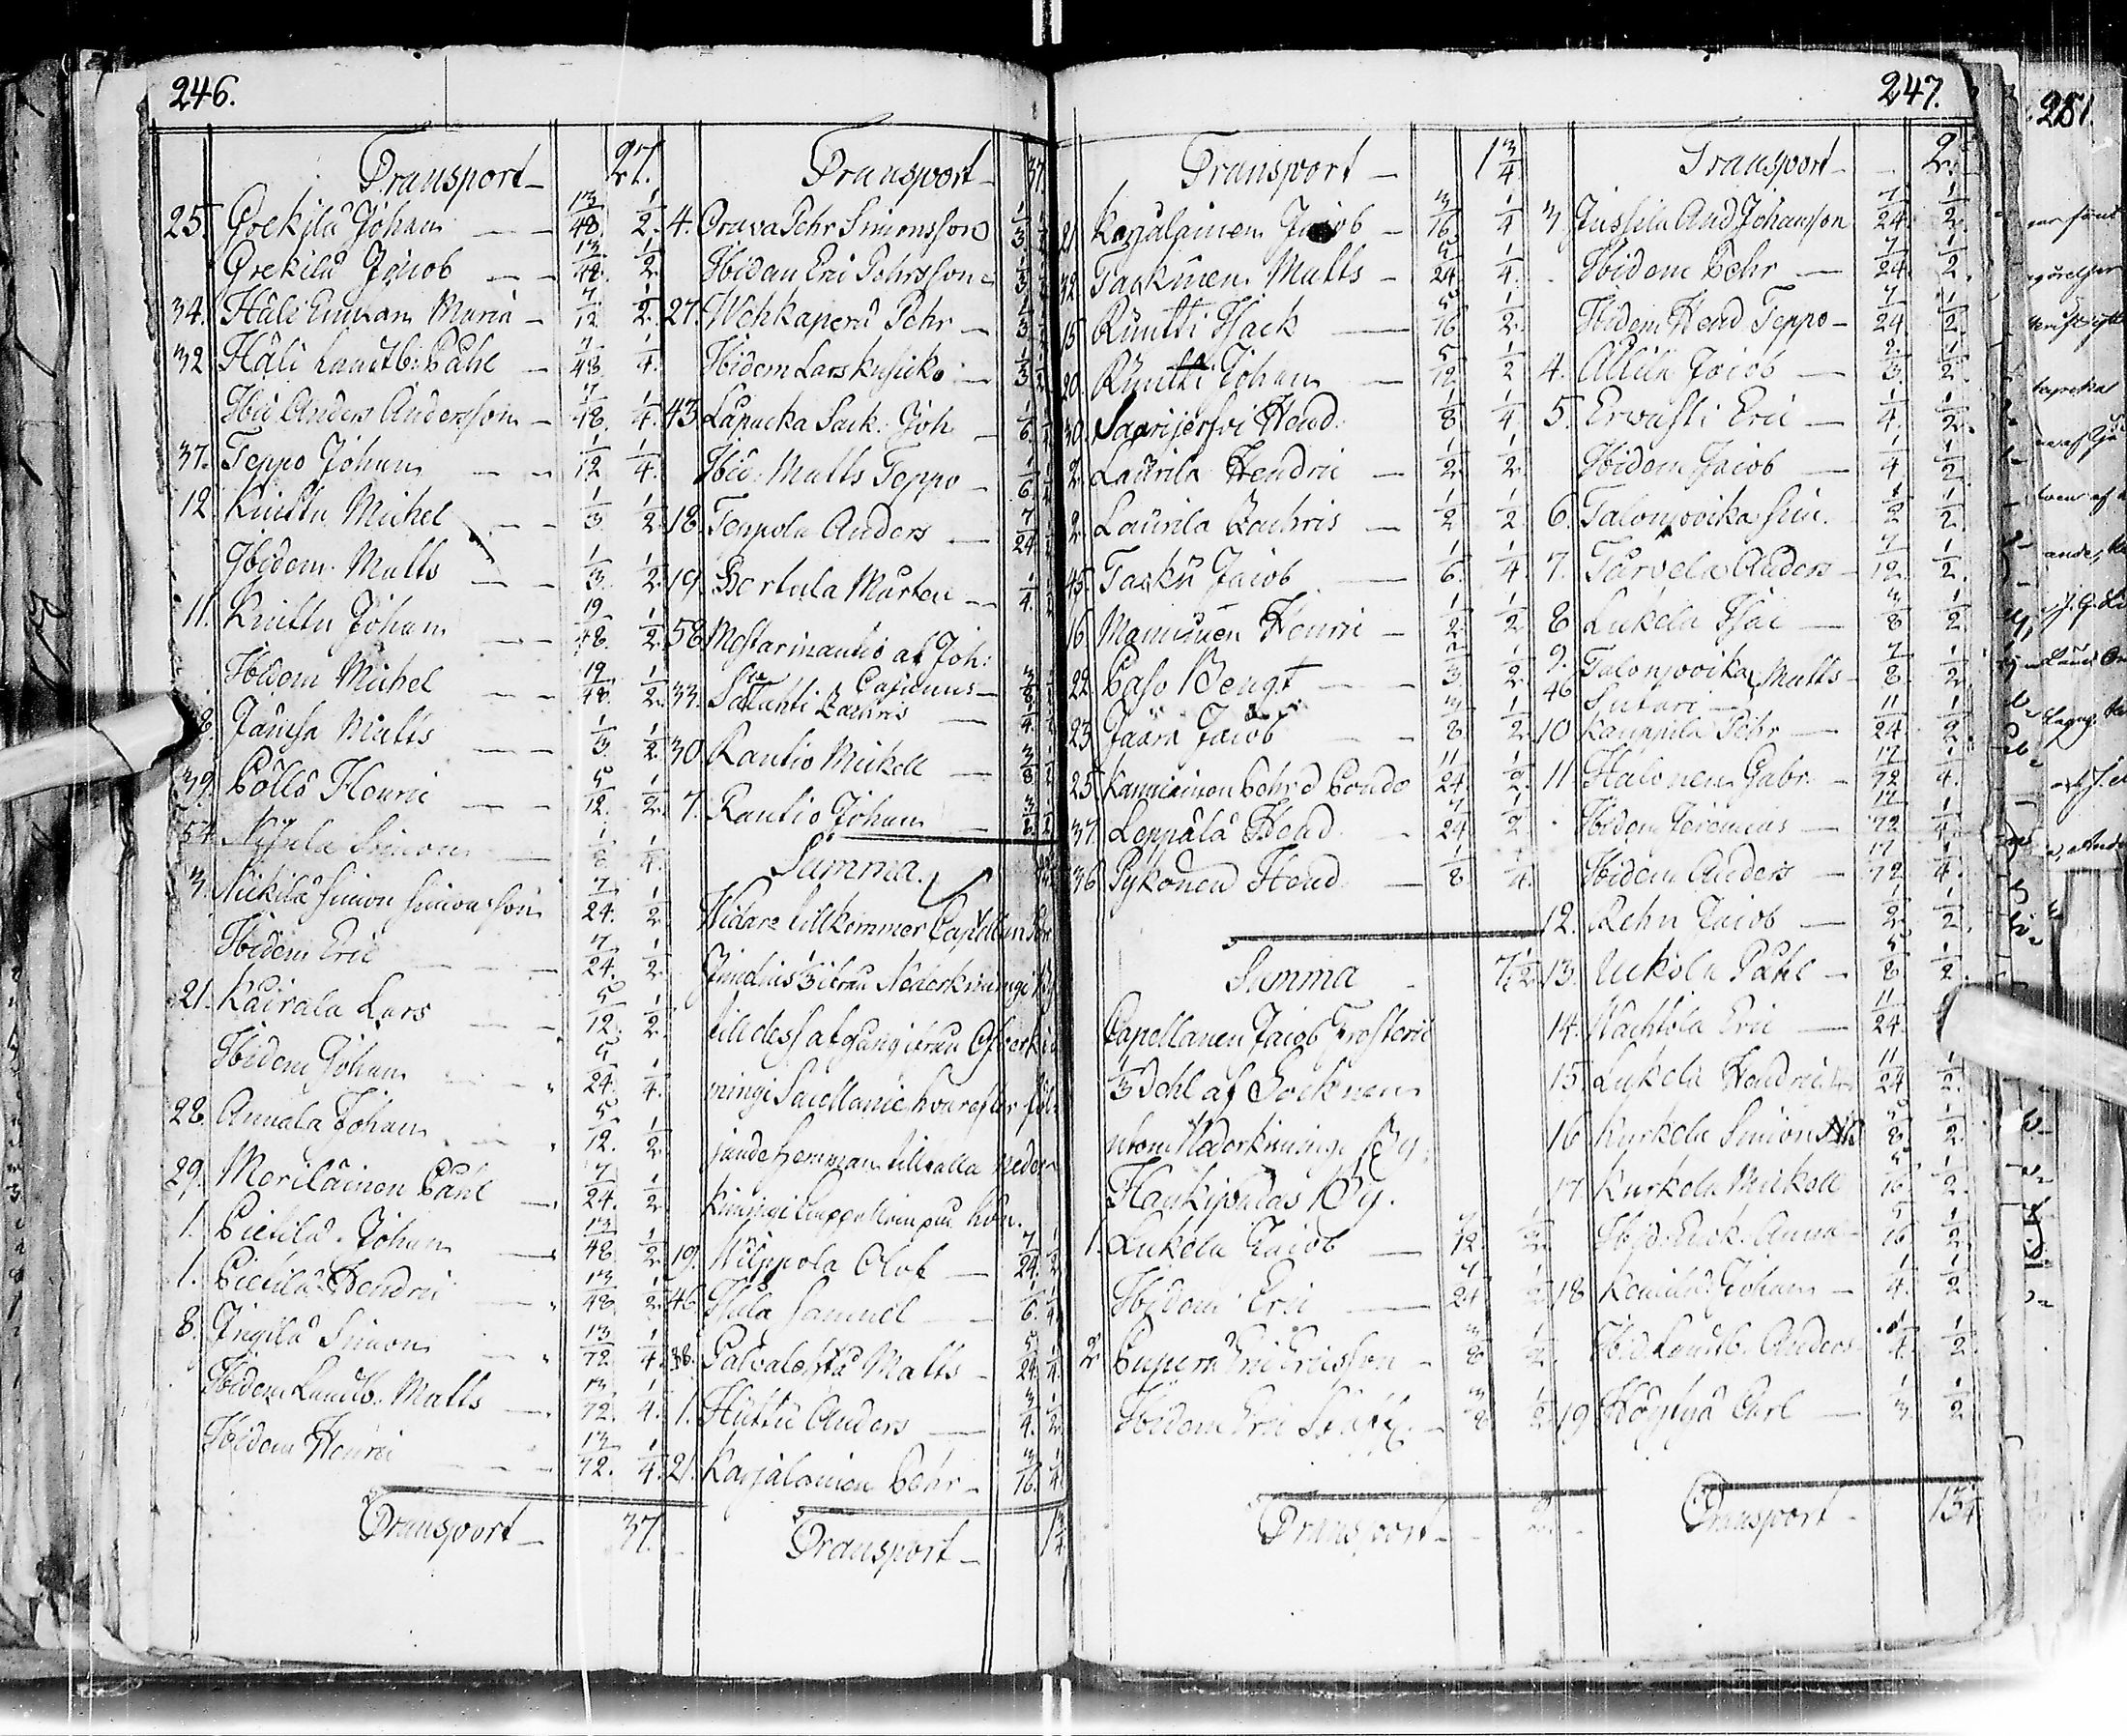 246.
Transport 27.
25. Grekilä Johan 13/48. 1/2.
Grekilä Jacob 13/48 1/2
34. Häli Enkan Maria 7/12 1/2
32 Häli Landtb: Påhl 7/48 1/4.
Ibid Anders Andersson 7/48. 1/4.
37. Teppo Johan 1/12 1/4.
12. Knuttu Michel 1/3 1/2
Ibidem Matts 1/3 1/2.
11. Knuttu Johan 19/48. 1/2.
Ibidem Michel 19/48. 1/2.
8. Matts 1/3. 1/2
39. Pöllö Henric 5/12. 1/2.
54. Simon 1/8 1/4.
3. Nickilä Simon Simonsson 7/24. 1/2
Ibidem Eric 7/24. 1/2.
21. Kairala Lars 5/12. 1/2.
Ibidem Johan 5/24. 1/4.
28. Annala Johan 5/12. 1/2.
29. Meriläinen Påhl 7/24. 1/2
1. Pietilä Johan 13/48 1/2
1. Pietilä Hendric 13/48 1/2.
8. Ingilä Simon 13/72 1/4.
Ibidem Landtb. Matts 13/72. 1/4.
Ibidem Henric 13/72. 1/4.
Transport 37.
Transport 37.
4. Orava Pehr Simonsson 1/3.
Ibidem Eric Pehrsson 1/3
27. Wehkaperä Pehr 1/3
Ibidem Lars 1/3 1/2
43 Lapucka Joh 1/6
Ibid: Matts Teppo 1/6
18. Teppola Anders 7/24.
19. Bertula Mårten 1/4.
58 af Joh:
Cajanus 3/8
33. Zachris 1/4
30. Rautio Mickell 3/8
7. Rautio Johan 3/8 1/2
Summa.
Widare tillkommer Capellan
ifrån Nederkiimingi By
till dess afgång ifrån Öfverkii
mingi Sacellanie hvarefter föl
jande hemman tillfalla neder
kimingi
19. Wilppola Olof 7/24. 1/2
46. Samuel 1/6. 1/4
38. Matts 5/24. 1/4
1. Huttu Anders 3/4. 1/2
21. Karjalainen Pehr 3/16. 1/4
Transport 1 3/4
247.
Transport 1 3/4
21. Karjalainen Jacob 3/16. 1/4
32. Taskinen Matts 5/24 1/4.
15 Runtti Isack 5/16 1/2
20. Runtti Johan 5/12 1/2
30. Saarijerfvi Hend: 1/8 1/4
2. Laurila Hendric 1/2 1/2
2. Laurila Zachris 1/2 1/2
45. Jacob 1/6. 1/4.
16 Manninen Henric 1/2 1/2
22. Paso Bengt 2/3. 1/2
23 Jaara Jacob 3/8 1/2
25. Pehr 11/24 1/2
37. Leppälä Hend. 7/24 1/2
36 Pykönen Hend. 1/8 1/4.
Summa 7 1/2
Capellanen Jacob Frosterus
1/3 Dehl af Socknen
utom Nederkiminge By.
Haukipudas By.
1. Lukola Jacob 7/12. 1/2
Ibidem Eric 7/24 1/2
2 Eric Ericsson 3/8 1/2.
Ibidem Eric Staff. 3/8 1/2
Transport 2
Transport 2.
3 Jussila And Johansson 7/24. 1/2.
Ibidem Pehr 7/24. 1/2
Ibidem Hend Teppo 7/24 1/2
4. Jacob 2/3. 1/2.
5. Ervasti Eric 1/4. 1/2.
Ibidem Jacob 1/4 1/2
6. Talonpoika Sim. 1/2 1/2
7. Tarvela Anders 7/12 1/2.
8 Lukola Isac 3/8 1/2.
9. Talonpoika Matts 7/8. 1/2.
46 Sutari
10 Kauppila Pehr 11/24 1/2.
11 Halonen Gabr. 17/72 1/4.
Ibidem Jeremias 17/72 1/4.
Ibidem Anders 17/72 1/4.
12. Rehn Jacob 1/2. 1/2.
13. Uckola Påhl 5/8 1/2.
14. Wachtola Eric 11/24.
15. Lukola Hendric 11/24 1/2.
16 Kurkela Simon 5/8 1/2.
17 Kurkela Mickell 5/16 1/2.
Ibid: Anna 5/16 1/2
18 Johan 1/4. 1/2.
Ibid Landtb. Anders 1/4. 1/2
19 Carl 1/3 1/2
Transport 13 1/4
251.